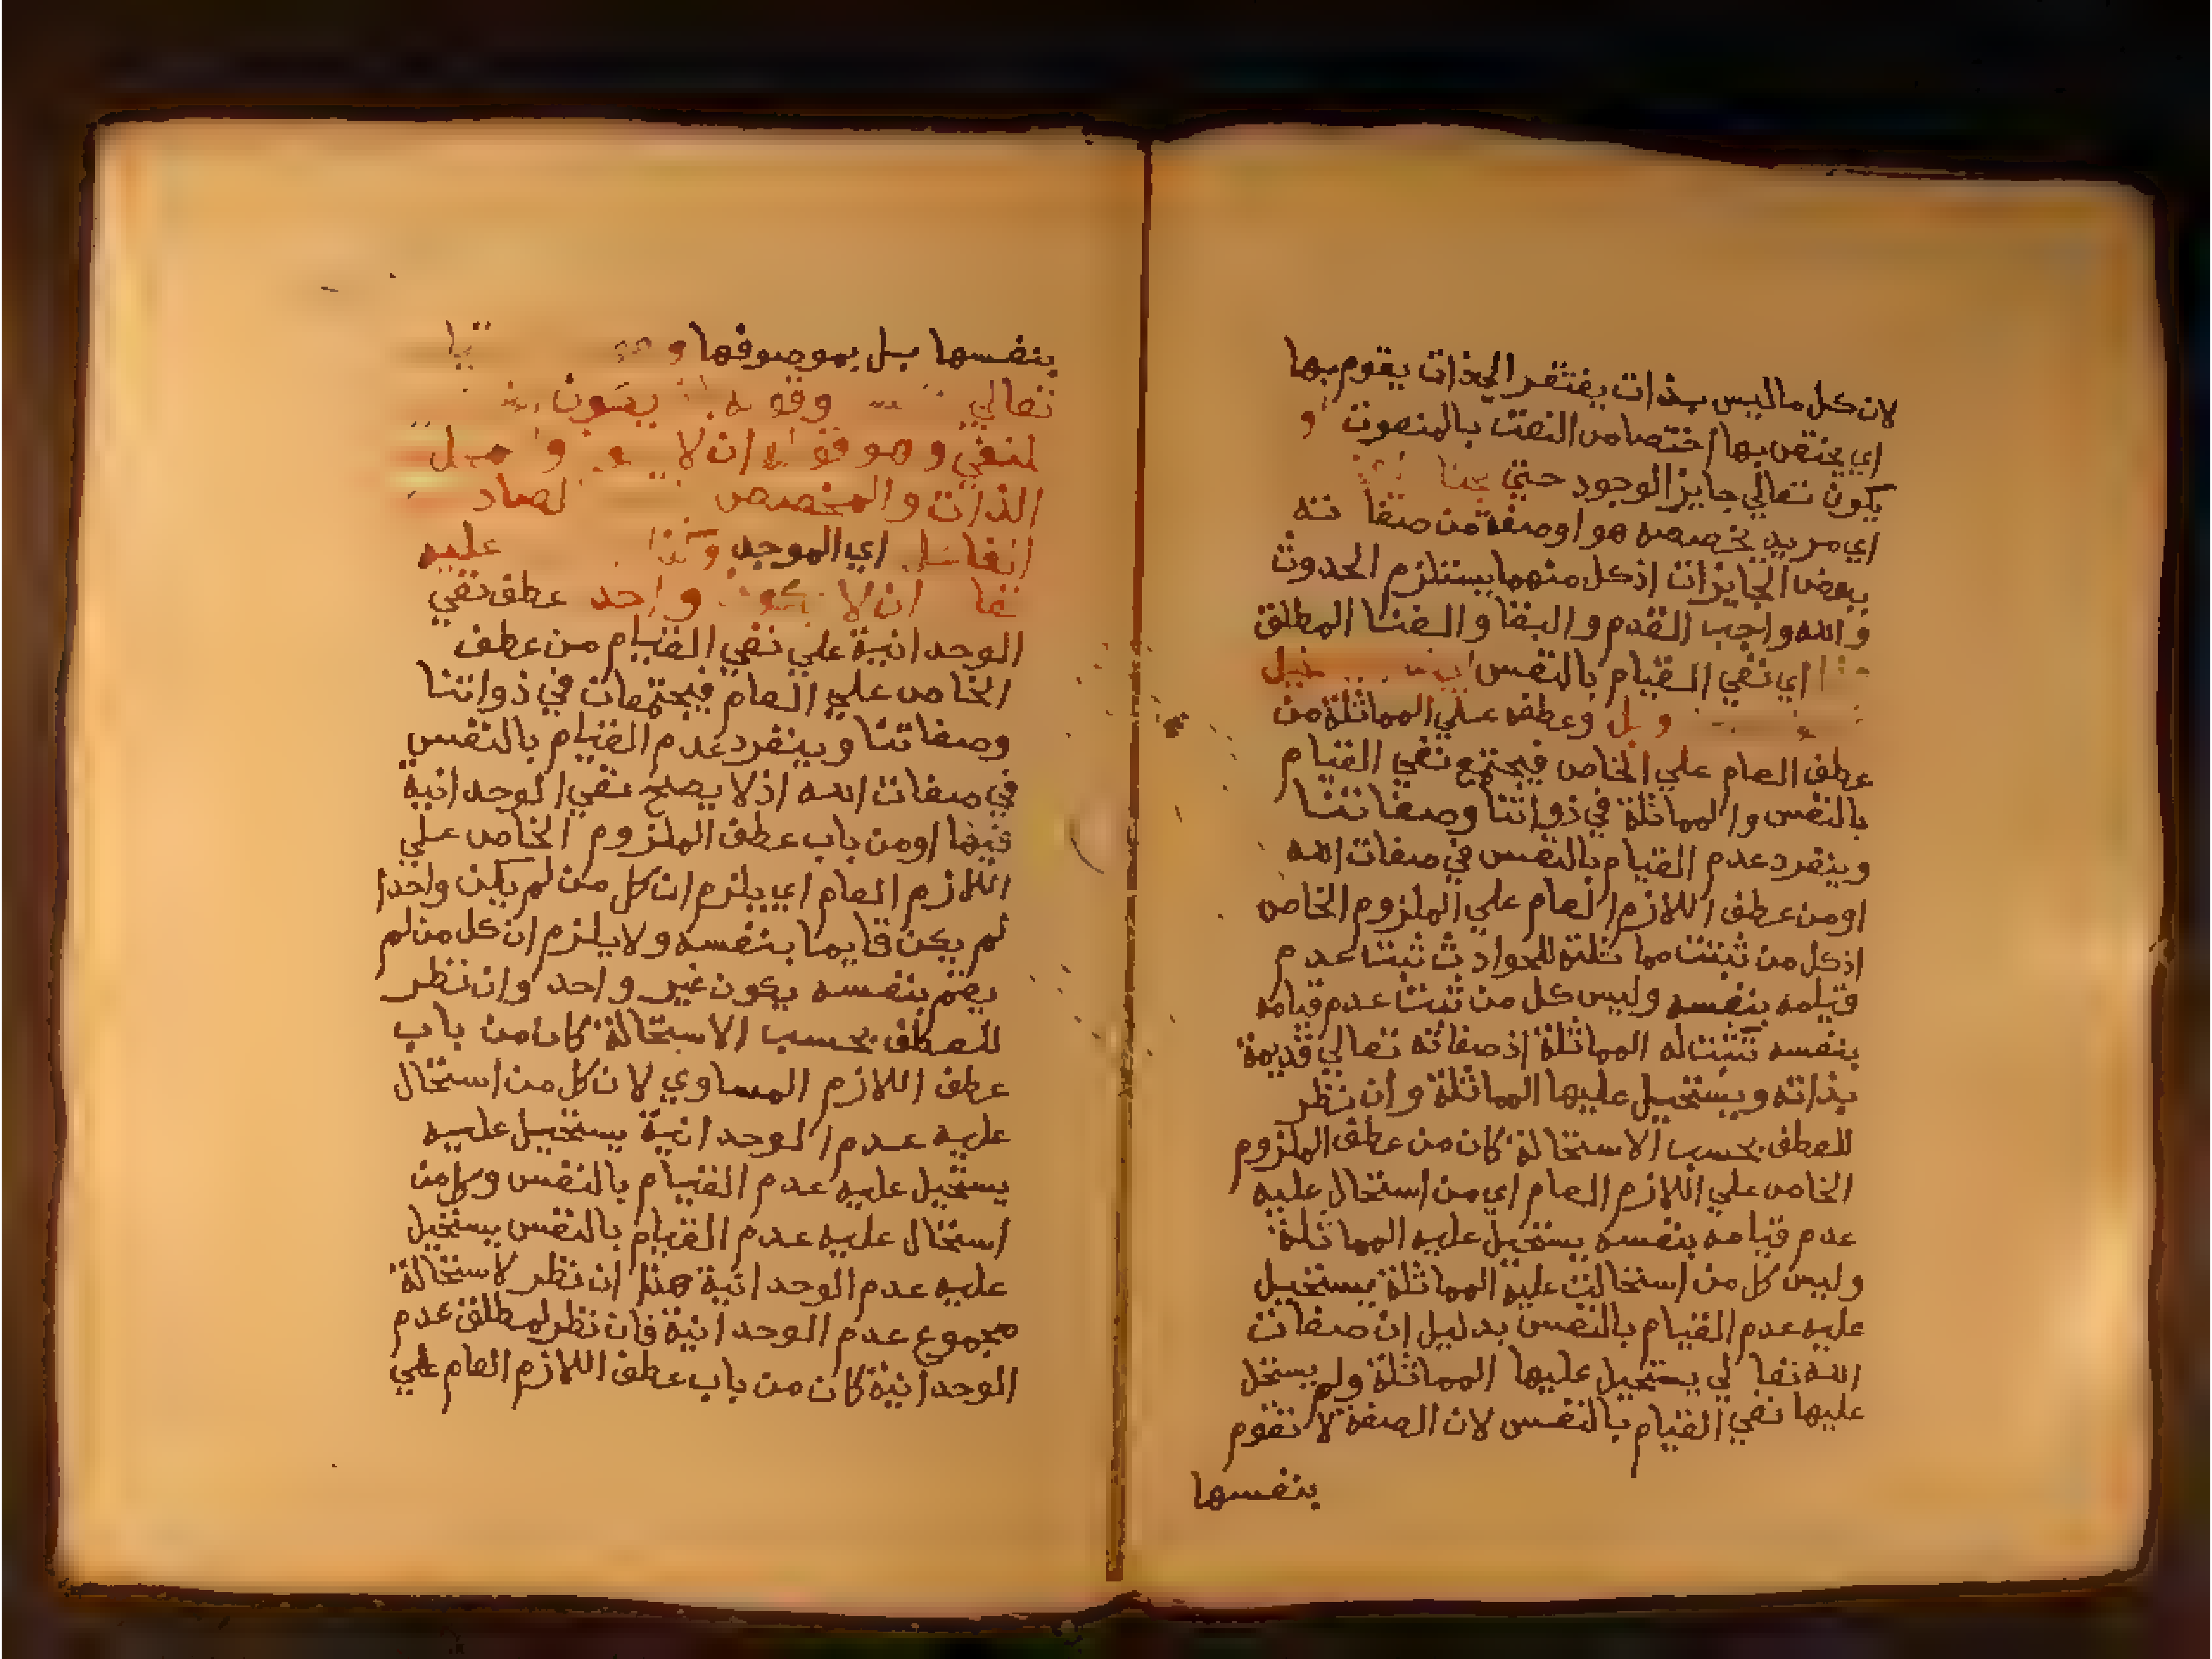 لان كل ما ليس بذات يفتقر الي ذات يقوم بها
اي يختص بها اختصاص النعت بالمنعوت او
يكون تعالي جايز الوجود حتي
اي مريد يخصصه هو او صفة من صفاته
ببعض الجايزات اذ كل منهما يستلزم الحدوث
والله واجب القدم والبقا والغنا المطلق
اي نفي القيام بالنفس
وعطفه علي المماثلة من
عطف العام علي الخاص فيجتمع نفي القيام
بالنفس والمماثلة في ذواتنا وصفاتنا
وينفرد عدم القيام بالنفس في صفات الله
او من عطف اللازم العام علي الملزوم الخاص
اذ كل من ثبتت مماثلته للحوادث ثبت عدم
قيامه بنفسه وليس كل من ثبت عدم قيامه
بنفسه تثبت له المماثلة اذ صفاته تعالي قديمة
بذاته ويستحيل عليها المماثلة وان نظر
للعطف بحسب الاستحالة كان من عطف الملزوم
الخاص علي اللازم العام اي من استحال عليه
عدم قيامه بنفسه يستحيل عليه المماثلة
وليس كل من استحالت عليه المماثلة يستحيل
عليه عدم القيام بالنفس بدليل ان صفات
الله تعالي يستحيل عليها المماثلة ولم يستحل
عليها نفي القيام بالنفس لان الصفة لا تقوم
بنفسها
بنفسها بل بموصوفها
تعالي
وهو قوله ان لا
الذات والمخصص
اي الموجد عليه
ان لا يكون واحد عطف نفي
الوحدانية علي نفي القيام من عطف
الخاص علي العام فيجتمعان في ذواتنا
وصفاتنا وينفرد عدم القيام بالنفس
في صفات الله اذ لا يصح نفي الوحدانية
فيها او من باب عطف الملزوم الخاص علي
اللازم العام اي يلزم ان كل من لم يكن واحدا
لم يكن قايما بنفسه ولا يلزم ان كل من لم
يقم بنفسه يكون غير واحد وان نظر
للعطف بحسب الاستحالة كان من باب
عطف اللازم المساوي لان كل من استحال
عليه عدم الوحدانية يستحيل عليه
يستحيل عليه عدم القيام بالنفس وكل من
استحال عليه عدم القيام بالنفس يستحيل
عليه عدم الوحدانية هذا ان نظر لاستحالة
مجموع عدم الوحدانية فان نظر لمطلق عدم
الوحدانية كان من باب عطف اللازم العام علي